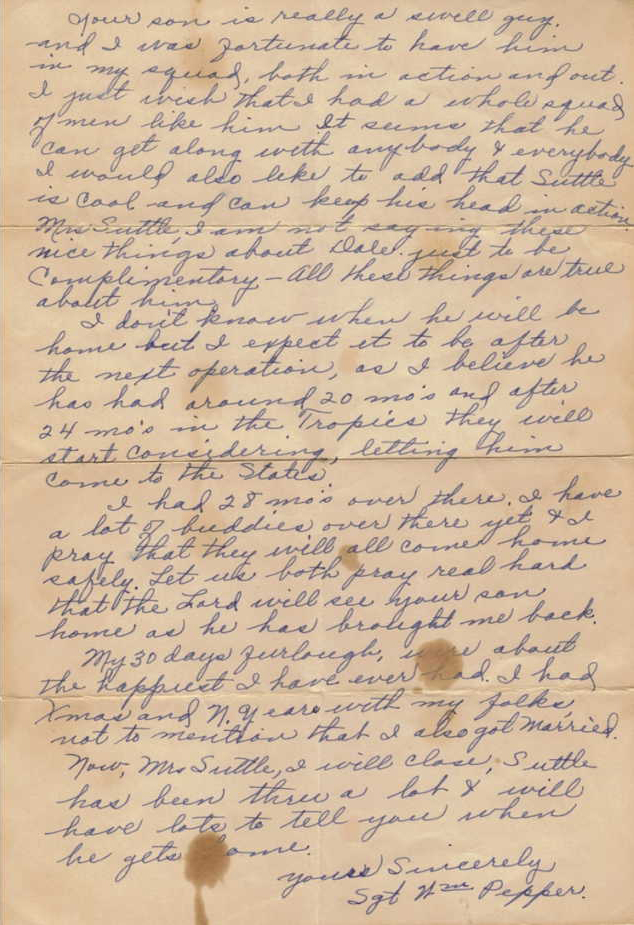 Your son is really a swell guy.
and I was fortunate to have him
in my squad, both in action and out.
I just wish that I had a whole squad
of men like him It seems that he
can get along with anybody & everybody
I would also like to add that Suttle
is cool and can keep his head in action.
Mrs Suttle, I am not saying these
nice things about Dale. just to be
Complimentory – All these things are true
about him.
I don't know when he will be
home but I expect it to be after
the next operation, as I believe he
has had around 20 mo's and after
24 mo's in the Tropics they will
start considering, letting him
come to the States.
I had 28 mo's over there. I have
a lot of buddies over there yet & I
pray that they will all come home
safely. Let us both pray real hard
that the Lord will see your son
home as he has brought me back.
My 30 days furlough, were about
the happiest I have ever had. I had
Xmas and N. Years with my folks,
not to mention that I also got Married.
Now, Mrs Suttle, I will close, Suttle
has been thru a lot & will
have lots to tell you when
he gets home.
Yours Sincerely
Sgt Wm Pepper.